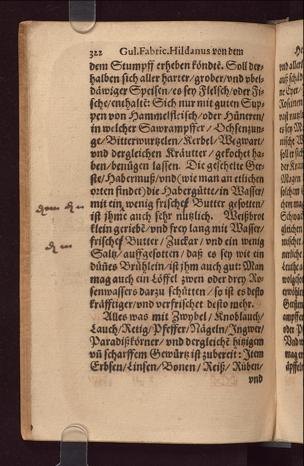 322 Gul. Fabric. Hildanus von dem
dem Stumpff erheben köndtē. Soll der-
halben sich aller harter/ grober/ vnd vbel-
däwiger Speisen/ es sey Fleisch/ oder Fi-
sche/ enthaltē: Sich nur mit guten Sup-
pen von Hammelfleisch/ oder Hüneren/
in welcher Sawrampffer/ Ochsenzun-
ge/ Bitterwurtzelen/ Kerbel/ Wegwart/
vnd dergleichen Kräutter/ gekochet ha-
ben/ benügen lassen. Die geschelte Ger-
ste/ Habermuß/ vnd (wie man an etlichen
orten findet) die Habergütz/ in Wasser/
mit ein wenig frischer Butter gesotten/
ist ihme auch sehr nutzlich. Weißbrot
klein geriebē/ vnd frey lang mit Wasser/
frischer Butter/ Zuckar/ vnd ein wenig
Saltz/ auffgesotten/ daß es sey wie ein
dünes Brühlein/ ist jhm auch gut: Man
mag auch ein Löffel zween oder drey Ro-
senwassers darzu schütten/ so ist es desto
kräfftiger/ vnd verfrischet desto mehr.
Alles was mit Zwybel/ Knoblauch/
Lauch/ Retig/ Pfeffer/ Nägeln/ Ingwer/
Paradißkörner/ vnd dergleichē hitzigem
vn̄ scharffem Gewürtz ist zubereit: Item
Erbsen/ Linsen/ Bonen/ Reiß/ Rüben/
vnd